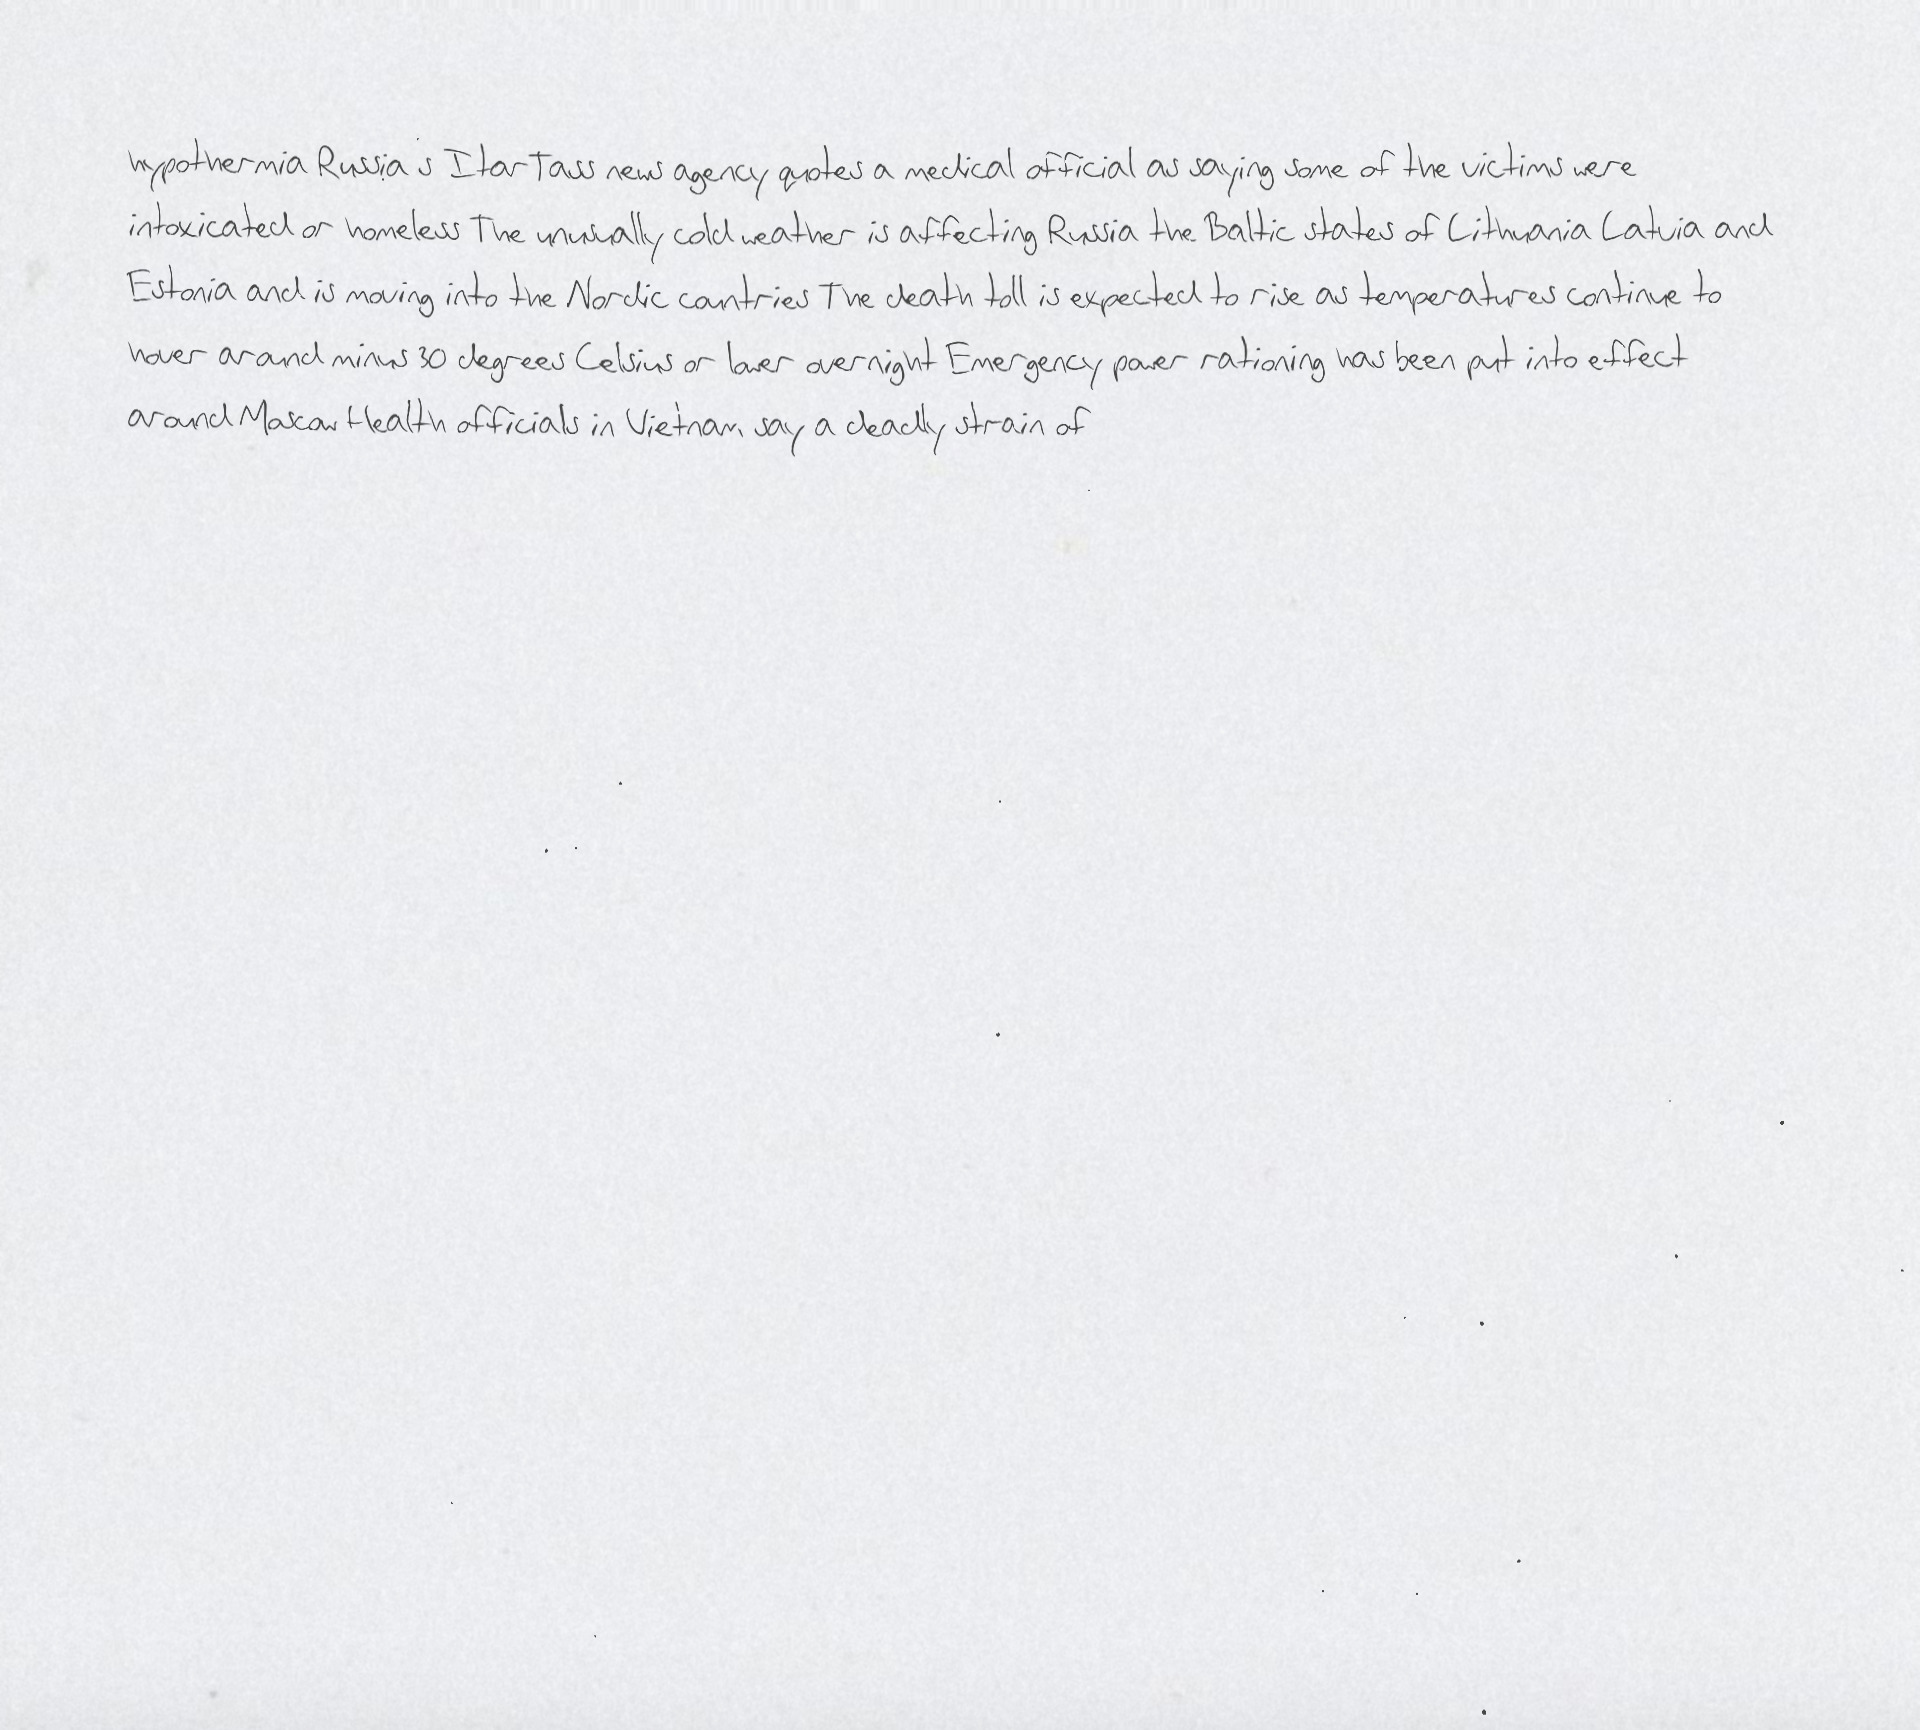 hypothermia Russia s Itar Tass news agency quotes a medical official as saying some of the victims were
intoxicated or homeless The unusually cold weather is affecting Russia the Baltic states of Lithuania Latvia and
Estonia and is moving into the Nordic countries The death toll is expected to rise as temperatures continue to
hover around minus 30 degrees Celsius or lower overnight Emergency power rationing has been put into effect
around Moscow Health officials in Vietnam say a deadly strain of